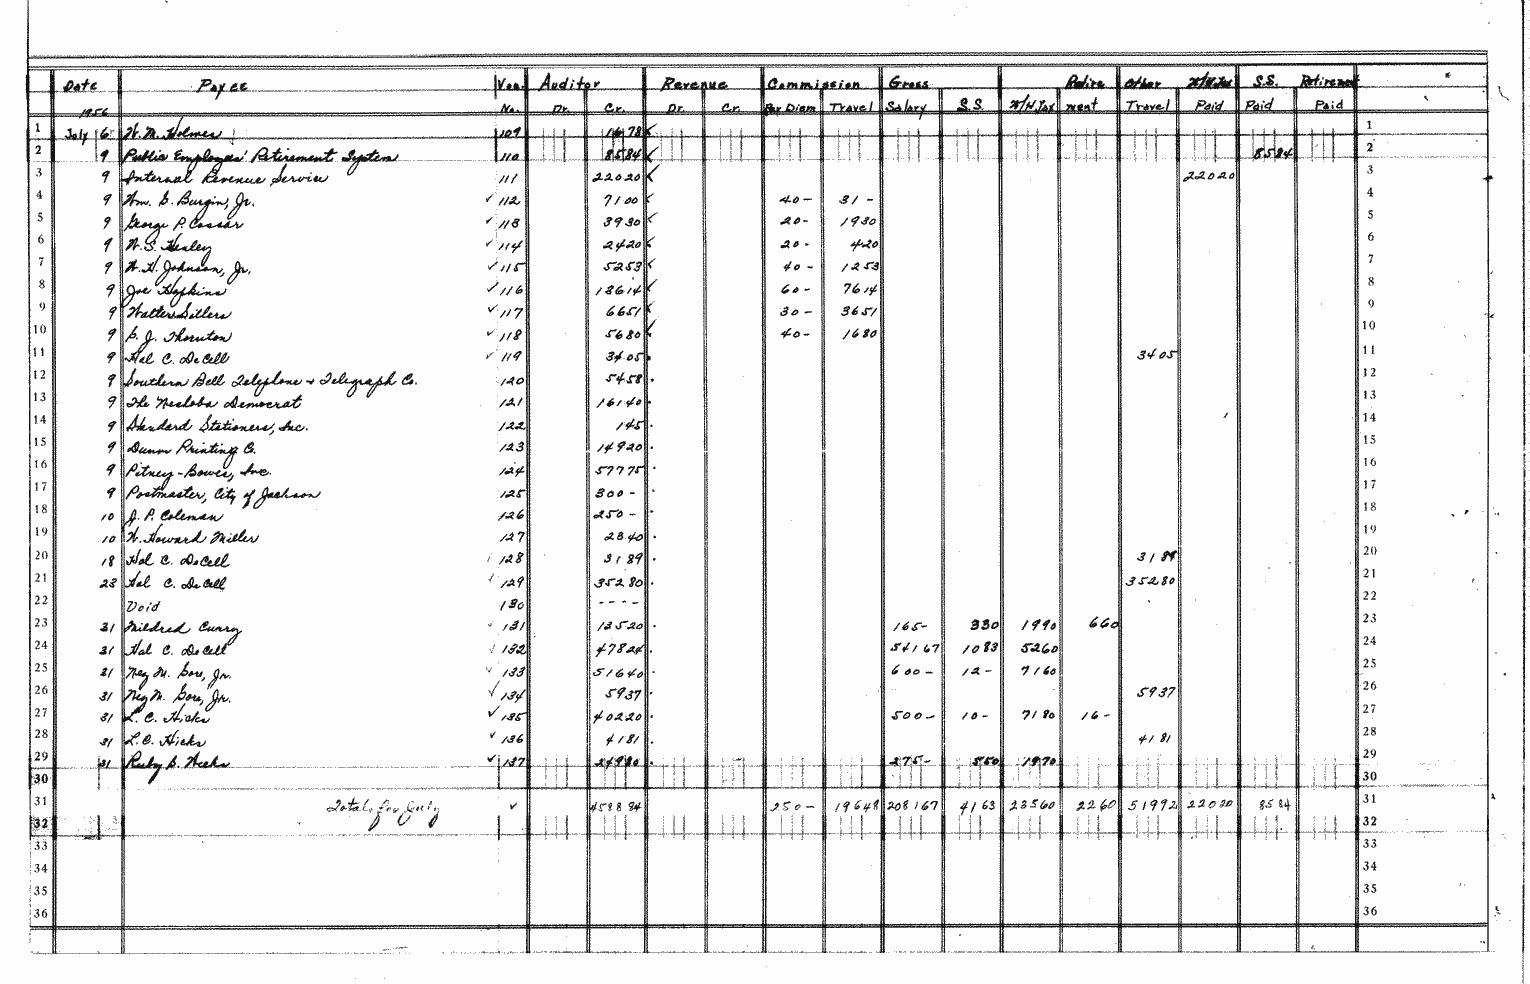 Date Payee Vou. Auditor Revenue Commission Gross Retire Other W/H Tax S.S. Retirement
1956 No. Dr. Cr. Dr. Cr. Per Diem Travel Salary S.S. W/H Tax ment Travel Paid Paid Paid
1 July 6 W. M. Holmes 109 1678 1
2 9 Public Employees' Retirement System 110 8584 8584 2
3 9 Internal Revenue Service 111 22020 22020 3
4 9 Wm. G. Burgin, Jr. ✓ 112 7100 40- 31- 4
5 9 George P. Cossar ✓ 113 3930 20- 1930 5
6 9 W. S. Henley ✓ 114 2420 20- 420 6
7 9 W. H. Johnson, Jr. ✓ 115 5253 40- 1253 7
8 9 Joe Hopkins ✓ 116 13614 60- 7614 8
9 9 Walter Sillers ✓ 117 6651 30- 3651 9
10 9 B. J. Thornton ✓ 118 5680 40- 1680 10
11 9 Hal C. DeCell ✓ 119 3405 3405 11
12 9 Southern Bell Telephone & Telegraph Co. 120 5458 12
13 9 The Neshoba Democrat 121 16140 13
14 9 Standard Stationers, Inc. 122 145 14
15 9 Dunn Printing Co. 123 14920 15
16 9 Pitney-Bowes, Inc. 124 57775 16
17 9 Postmaster, City of Jackson 125 300- 17
18 10 J. P. Coleman 126 250- 18
19 10 W. Howard Miller 127 2340 19
20 18 Hal C. DeCell 128 3189 3189 20
21 23 Hal C. DeCell 129 35280 35280 21
22 Void 130 ---- 22
23 31 Mildred Curry ✓ 131 13520 165- 330 1990 660 23
24 31 Hal C. DeCell ✓ 132 47824 54167 1083 5260 24
25 31 Ney M. Gore, Jr. ✓ 133 51640 600- 12- 7160 25
26 31 Ney M. Gore, Jr. ✓ 134 5937 5937 26
27 31 L. C. Hicks ✓ 135 40220 500- 10- 7180 16- 27
28 31 L. C. Hicks ✓ 136 4181 4181 28
29 31 Ruby B. Hicks ✓ 137 24980 275- 550 1970 29
30 30
31 Totals for July ✓ 458884 250- 19648 208167 4163 23560 2260 51992 22020 8584 31
32 32
33 33
34 34
35 35
36 36